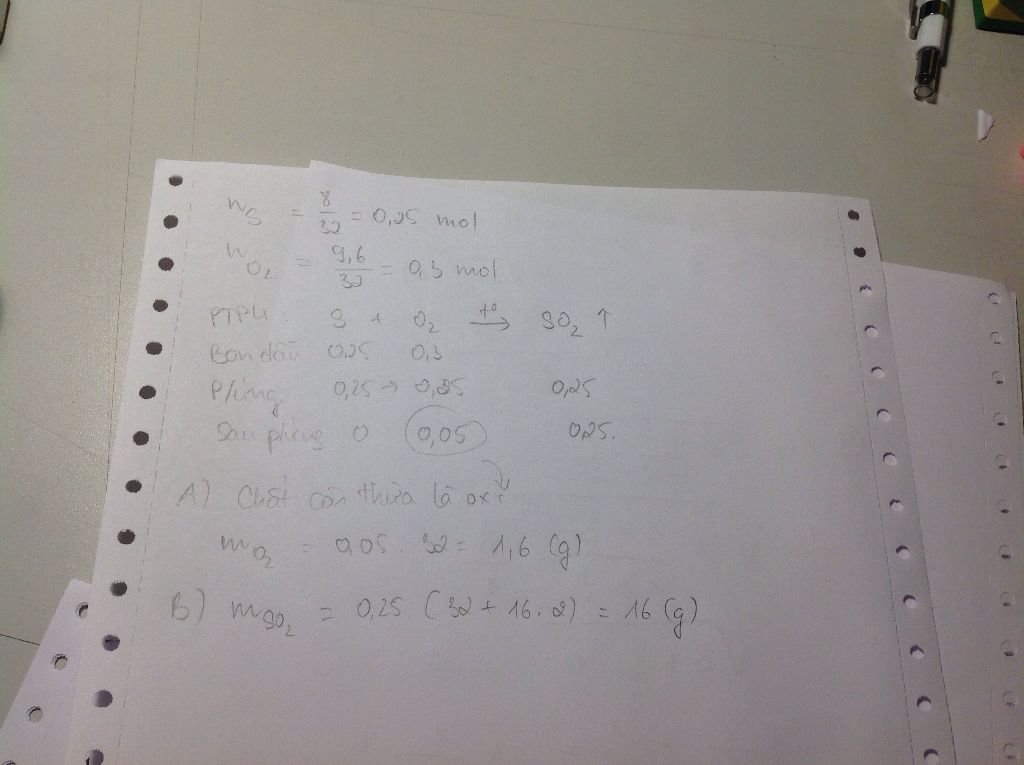 n_S = 8/32 = 0,25 mol
n_O2 = 9,6/32 = 0,3 mol
PTPU. S + O2 t° → SO2 ↑
Ban đầu 0,25 0,3
P/ứng 0,25 → 0,25 0,25
Sau p/ứng 0 0,05 0,25.
A) Chất còn thừa là oxi
m_O2 = 0,05 . 32 = 1,6 (g)
B) m_SO2 = 0,25 (32 + 16.2) = 16 (g)